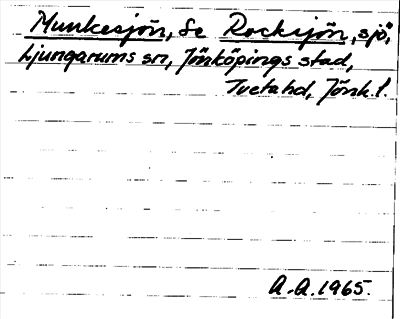 Munkesjön, Se Rocksjön, sjö,
Ljungarums sn, Jönköpings stad,
Tveta hd, Jönk. l.
A.A. 1965.